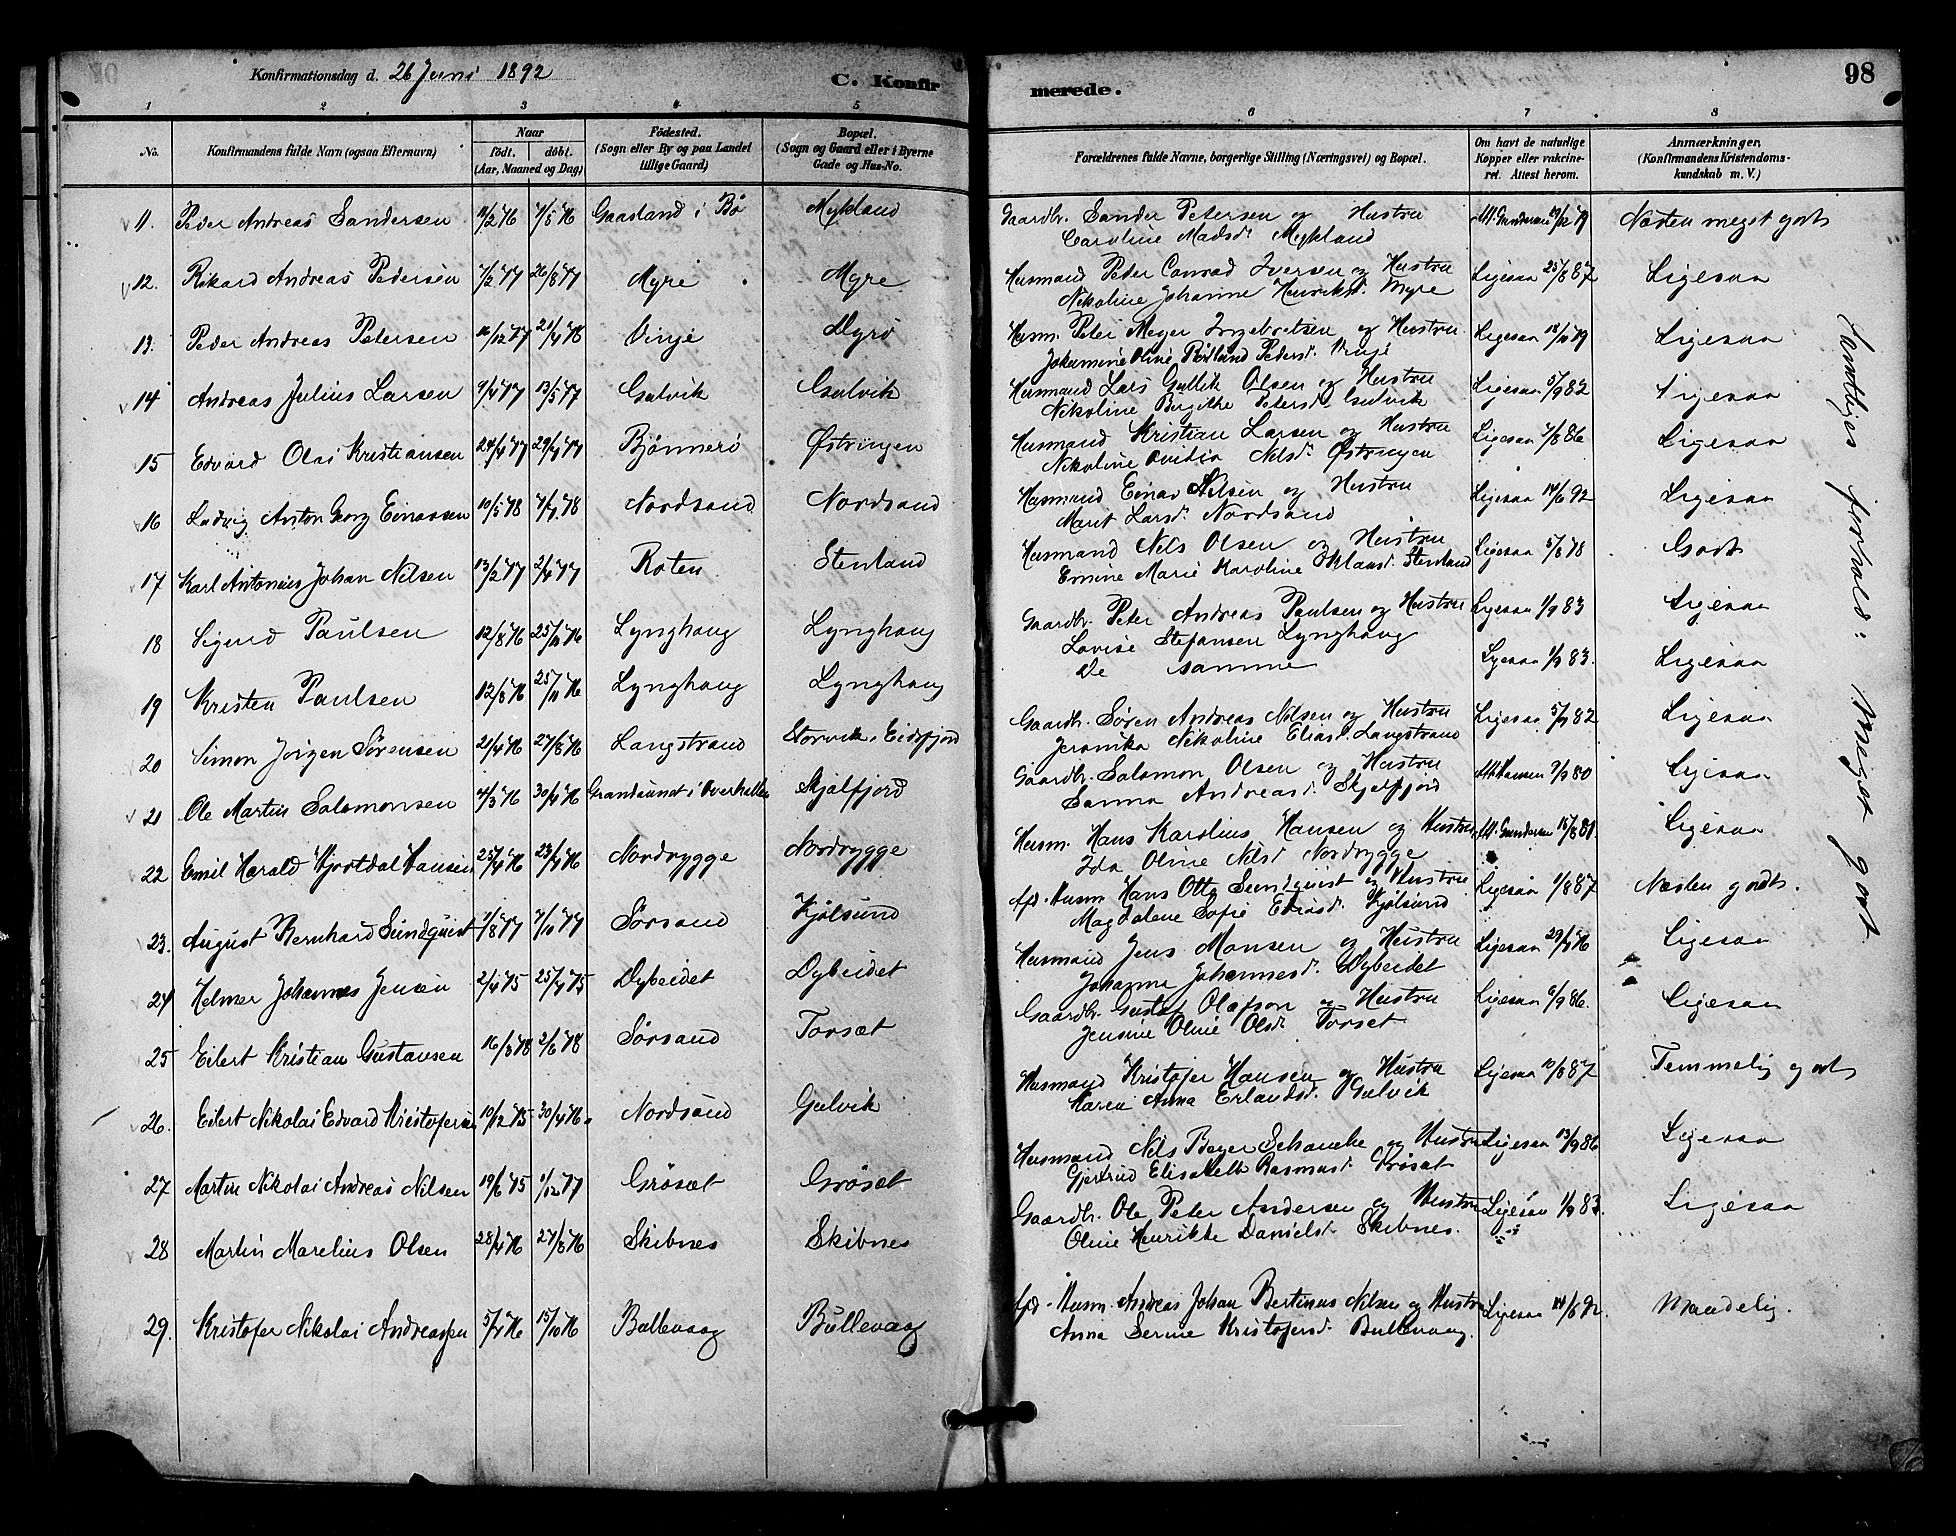 Konfirmationsdag d. 26 Juni 1892
C. Konfirmerede.
98
1 2 3 4 5 6 7 8
No. Konfirmandens fulde Navn (ogsaa Efternavn) Naar født. døbt. (Aar, Maaned og Dag) Fødested. (Sogn eller By og paa Landet tillige Gaard) Bopæl. (Sogn og Gaard eller i Byerne Gade og Hus-No. Forældrenes fulde Navne, borgerlige Stilling (Næringsvei) og Bopæl. Om havt de naturlige Kopper eller vakcineret. Attest herom. Anmærkninger. (Konfirmandens Kristendomskundskab m. V.)
11. Peder Andreas Sandersen 7/5 76 Gaasland i Bø Mykland Gaardbr. Sander Petersen og Hustru Att. Gundersen Næsten meget godt
Caroline Madsd. Mykland
12. Rikard Andreas Pedersen 7/2 77 26/8 77 Myre Myre Husmand Peder Conrad Iversen og Hustru Ligesaa 25/8 87 Ligesaa
Nikoline Johanne Henriksd. Myre
13. Peder Andreas Petersen Vinje Myre Husm. Peter Meyer Ingebretsen og Hustru Ligesaa Ligesaa
Petersd. Vinje
14 Andreas Julius Larsen 9/4 77 13/5 77 Gulvik Gulvik Husmand Lars Gullik Olsen og Hustru Ligesaa 5/9 82 Ligesaa
Nikoline Birgithe Petersd. Gulvik
15 Edvard Olai Kristiansen Bjønnerø Østvingen Husmand Kristian Larsen og Hustru Ligesaa 7/8 86 Ligesaa
Nikoline Ovidia Nilsd. Østvingen
16 Ludvig Anton Georg Einarsen 10/5 78 7/7 78 Nordsand Nordsand Husmand Einar Nilsen og Hustru Ligesaa 14/6 92 Ligesaa
Maret Larsd. Nordsand
17 Karl Antonius Johan Nilsen 13/2 77 2/4 77 Roten Stenland Husmand Nils Olsen og Hustru Ligesaa 5/8 78 Godt
Emine Marie Karoline Stenland
18 Sigurd Paulsen 12/8 76 25/11 76 Lynghaug Lynghaug Gaardbr. Peter Andreas Paulsen og Hustru Ligesaa 1/9 83 Ligesaa
Lovise Stefansen Lynghaug
19 Kristen Paulsen 12/8 76 25/11 76 Lynghaug Lynghaug De samme Ligesaa 1/9 83. Ligesaa
20 Simon Jørgen Sørensen 21/4 76 27/8 76 Langstrand Storvik i Eidsfjord Gaardbr. Søren Andreas Nilsen og Hustru Ligesaa 5/9 82 Ligesaa
Jeronika Nikoline Eliasd. Langstrand
21 Ole Martin Salomonsen 4/3 76 30/4 76 Grandsundet i Overhallen Skjælfjord Gaardbr. Salomon Olsen og Hustru Att. Hansen 9/9 80 Ligesaa
Sanna Andreasd. Skjelfjord
22 Emil Harald Hjortdal Hansen 25/4 76 23/7 76 Nordrygge Nordrygge Husm. Hans Karolius Hansen og Hustru Att. Gundersen Ligesaa
Ida Oline Nilsd. Nordrygge
23. August Bernhard Sundquist 1/8 77 7/10 77 Sørsand Kjølsund Afd. Husm. Hans Otto Sundquist og Hustru Ligesaa 1/8 87 Næsten godt.
Magdalene Sofie Kjølsund
24 Helmer Johannes Jensen 2/4 75 25/4 75 Dybeidet Dybeidet Husmand Jens Monsen og Hustru Ligesaa Ligesaa
Johanna Johannesd. Dybeidet
25 Eilert Kristian Gustavsen 16/3 78 2/6 78 Sørsand Torsæt Gaardbr. Gustaf Olafson og Hustru Ligesaa 6/9 86. Ligesaa
Jensine Oline Olsd. Torset
26. Eilert Nikolai Edvard Kristofersen 10/12 75 30/4 76. Nordsand Gulvik Husmand Kristofer Hansen og Hustru Ligesaa 10/8 87 Temmelig godt
Karen Anna Erlandsd. Gulvik
27 Martin Nikolai Andreas Nilsen 19/6 75 Grøsæt Grøsæt Husmand Nils Beyer Schancke og Hustru Ligesaa 13/9 86 Ligesaa
Gjertrud Elisabeth Rasmusd. Grøsæt
28 Martin Marelius Olsen 28/4 76 27/8 76 Skibnes Skibnes Gaardbr. Ole Peter Andersen og Hustru Ligesaa 1/9 83. Ligesaa
Oline Henrikke Danielsd. Skibnes.
29. Kristofer Nikolai Andreassen 15/10 76 Bullevaag Bullevaag Afd. Husm. Andreas Johan Bertinus Nilsen og Hustru Ligesaa 14/6 92. Maadelig.
Anna Serine Kristofersd. Bullevaag.
Samtliges forhold: Meget godt